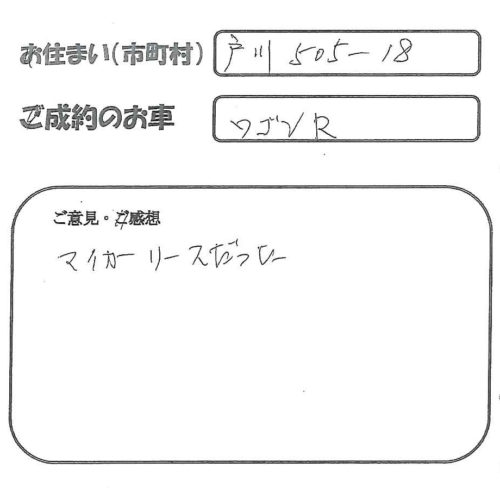 お住まい(市町村) 戸川 505-18
ご成約のお車 ワゴンR
ご意見・ご感想
マイカーリースだった